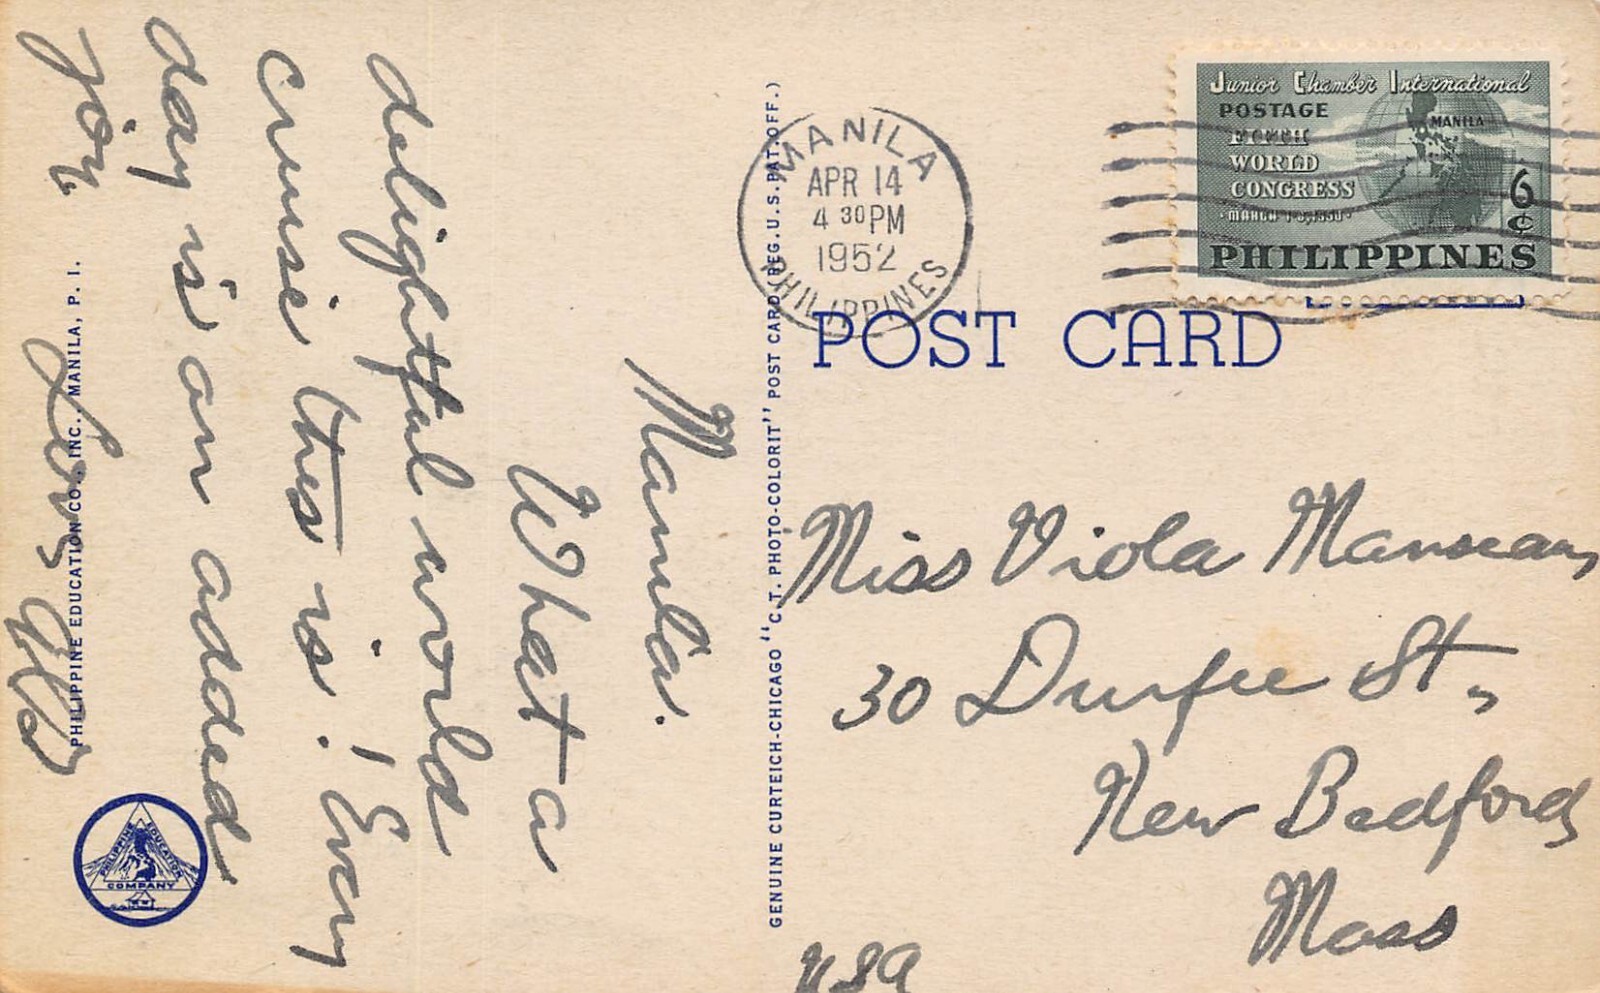 Manila.
What a
delightful world
cruise this is! Every
day is an added
joy.
Love
PHILIPPINE EDUCATION CO., INC., MANILA, P. I.
PHILIPPINE EDUCATION
COMPANY
GENUINE CURTEICH-CHICAGO "C. T. PHOTO-COLORIT" POST CARD (REG. U.S. PAT. OFF.)
MANILA
APR 14
4 30 PM
1952
PHILIPPINES
Junior Chamber International
POSTAGE
MANILA
FIFTH
WORLD
CONGRESS
MARCH 1-8, 1950
6
¢
PHILIPPINES
POST CARD
Miss Viola Manseau
30 Durfee St,
New Bedford
Mass
USA